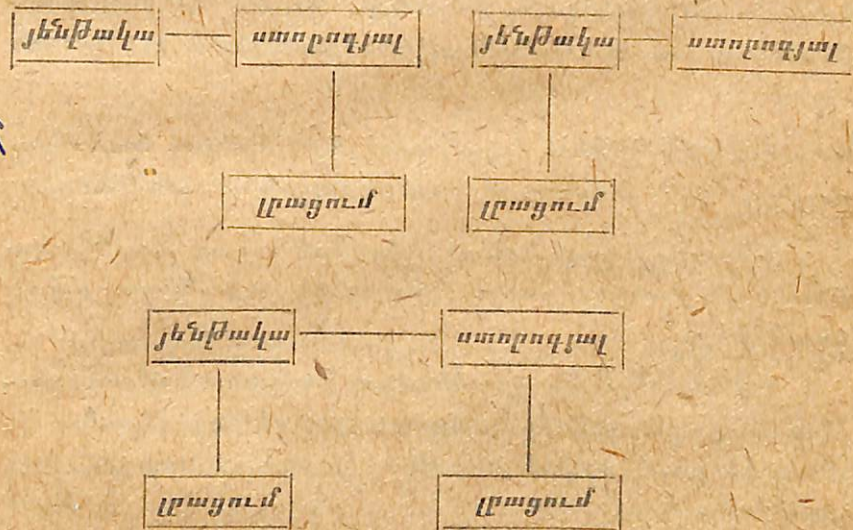 յենթակա ստորոգյալ յենթակա ստորոգյալ
լրացում լրացում
յենթակա ստորոգյալ
լրացում լրացում